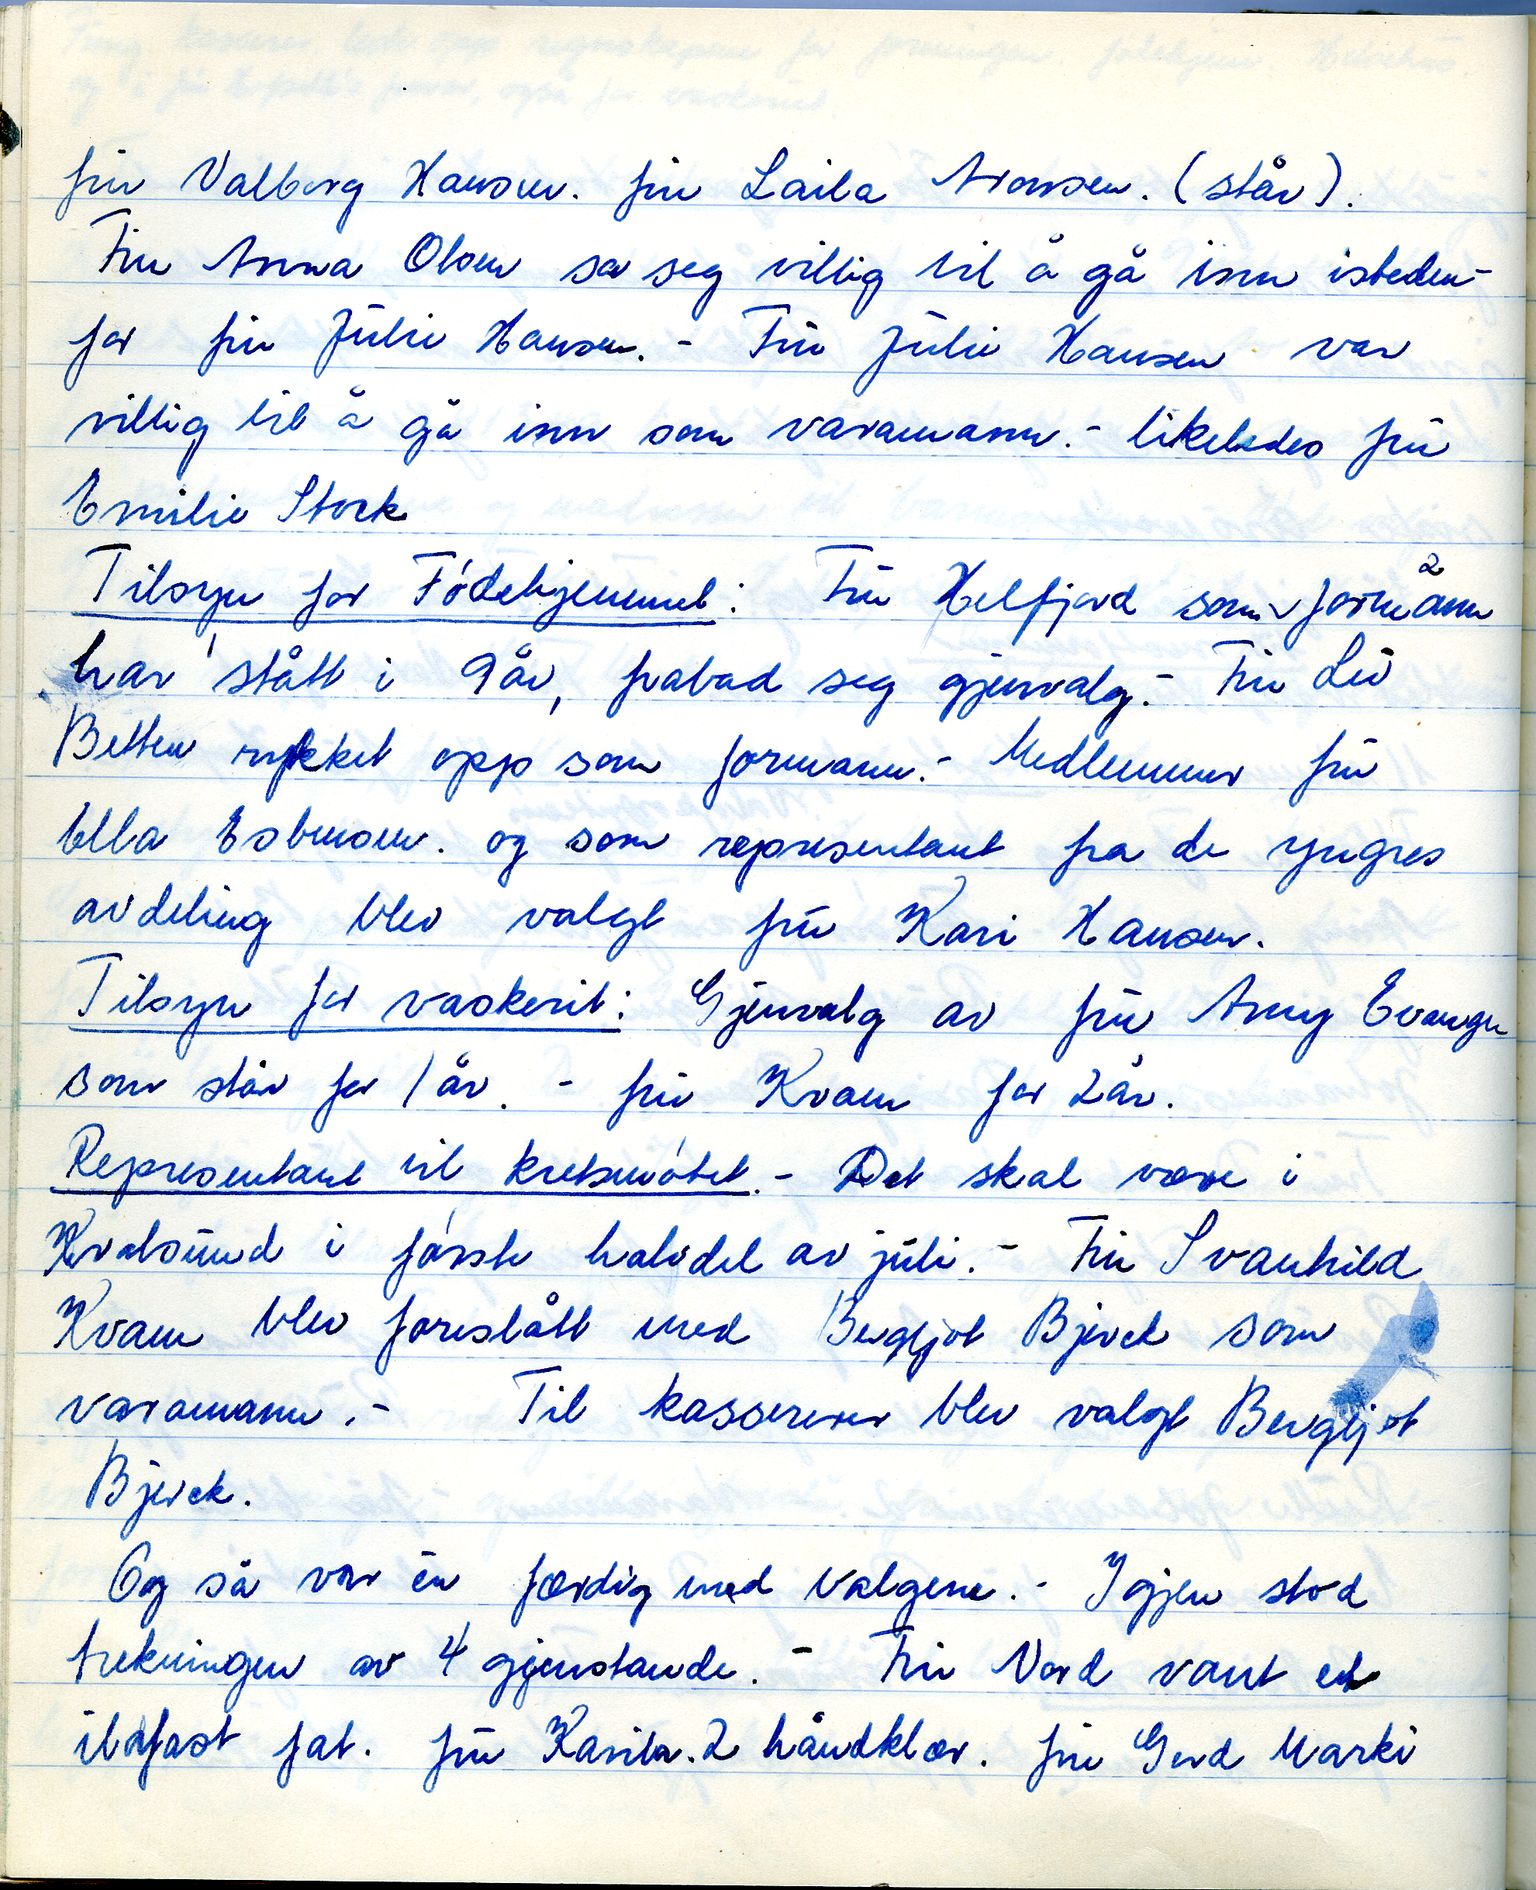 fru Valborg Hansen. fru Laila Aronsen. (står).
Fru Anna Olsen sa seg villig til å gå inn isteden-
for fru Julie Hansen. - Fru Julie Hansen var
villig til å gå inn som varamann. - likeledes fru
Emilie Stock
Tilsyn for Fødehjemmet: Fru Helfjord som formann
har stått i 9 år, frabad seg gjenvalg. - Fru Liv
Betten rykket opp som formann. - Medlemmer fru
Ella Esbensen. og som representant fra de yngres
avdeling blev valgt fru Kari Hansen.
Tilsyn for vaskerit: Gjenvalg av fru Anny Evangen
som står for 1 år. - fru Kvam for 2 år.
Representant til kretsmøtet. - Det skal være i
Kvalsund i første halvdel av juli. - Fru Svanhild
Kvam blev foreslått med Bergljot Bjerck som
varamann. - Til kasserer blev valgt Bergljot
Bjerck.
Og så var en færdig med valgene. - Igjen stod
trekningen av 4 gjenstande. - Fru Nord vant et
ildfast fat. fru Karila. 2 håndklær. fru Gerd Marki